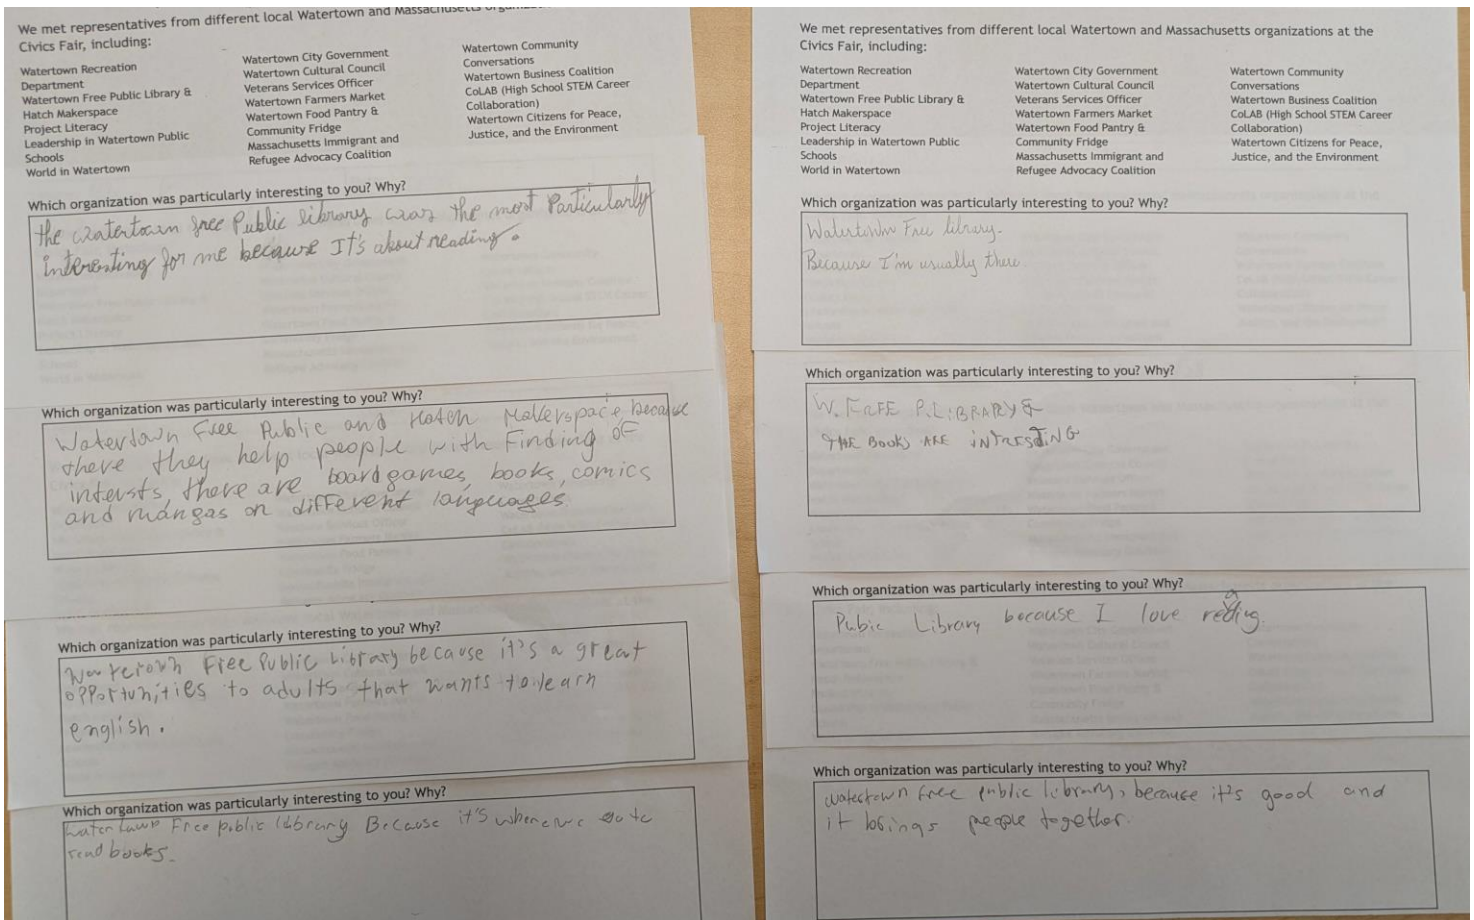 We met representatives from different local Watertown and Massachusetts
Civics Fair, including:
Watertown Recreation
Department
Watertown Free Public Library &
Hatch Makerspace
Project Literacy
Leadership in Watertown Public
Schools
World in Watertown
Watertown City Government
Watertown Cultural Council
Veterans Services Officer
Watertown Farmers Market
Watertown Food Pantry &
Community Fridge
Massachusetts Immigrant and
Refugee Advocacy Coalition
Watertown Community
Conversations
Watertown Business Coalition
CoLAB (High School STEM Career
Collaboration)
Watertown Citizens for Peace,
Justice, and the Environment
Which organization was particularly interesting to you? Why?
the watertown free Public library was the most Particularly
interesting for me because It's about reading.
Which organization was particularly interesting to you? Why?
Watertown Free Public and Hatch Makerspace, because
there they help people with Finding of
intersts, there are boardgames, books, comics
and mangas on different languages
Which organization was particularly interesting to you? Why?
Free Public Library because it's a great
opportunities to adults that wants to learn
english.
Which organization was particularly interesting to you? Why?
Free public library Because it's where we
read books.
We met representatives from different local Watertown and Massachusetts organizations at the
Civics Fair, including:
Watertown Recreation
Department
Watertown Free Public Library &
Hatch Makerspace
Project Literacy
Leadership in Watertown Public
Schools
World in Watertown
Watertown City Government
Watertown Cultural Council
Veterans Services Officer
Watertown Farmers Market
Watertown Food Pantry &
Community Fridge
Massachusetts Immigrant and
Refugee Advocacy Coalition
Watertown Community
Conversations
Watertown Business Coalition
CoLAB (High School STEM Career
Collaboration)
Watertown Citizens for Peace,
Justice, and the Environment
Which organization was particularly interesting to you? Why?
Watertown Free library.
Because I'm usually there
Which organization was particularly interesting to you? Why?
W. FREE P.LIBRARY &
THE BOOKS ARE
Which organization was particularly interesting to you? Why?
Pubic Library because I love
Which organization was particularly interesting to you? Why?
watertown free public library, because it's good and
it brings people together.